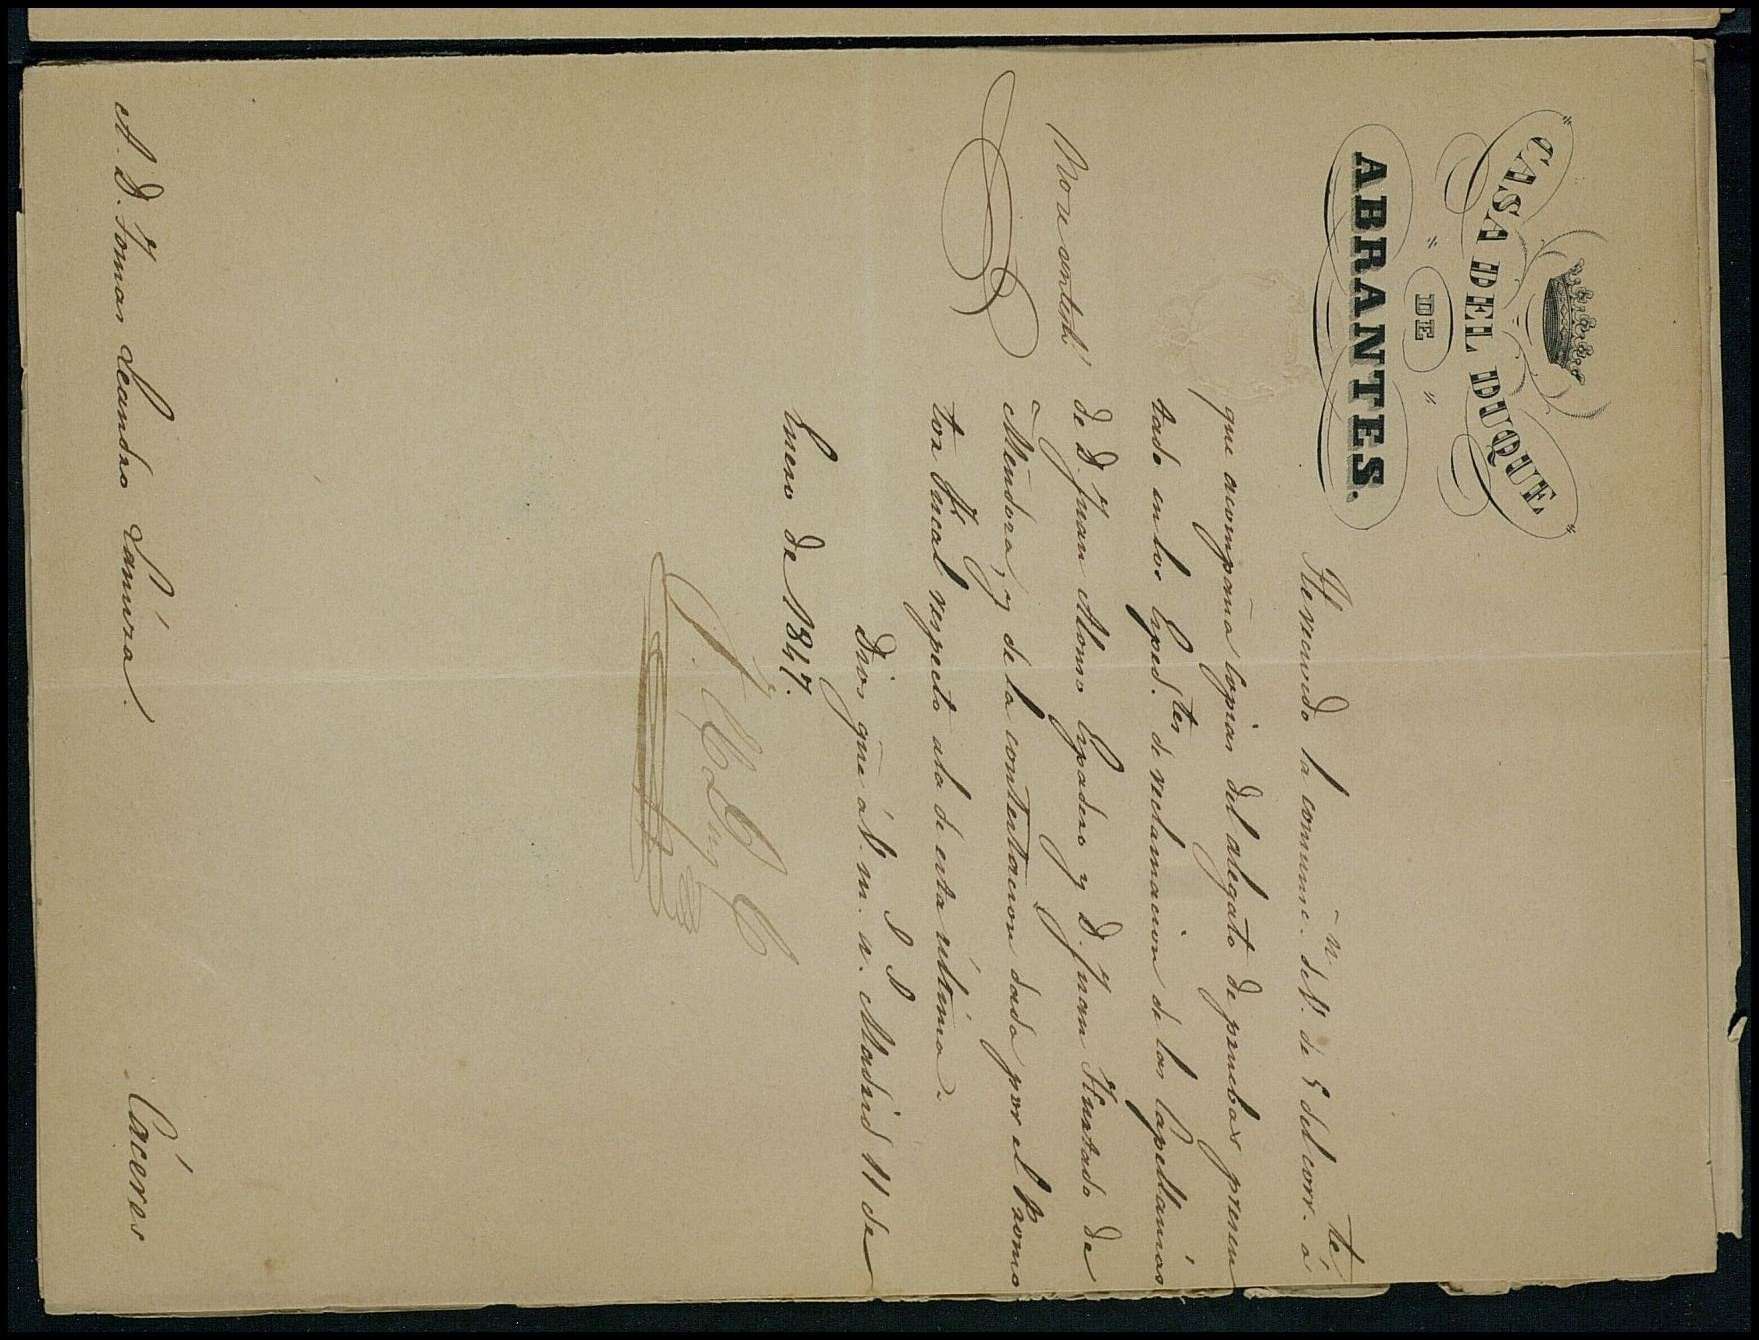 CASA DEL DUQUE
DE
ABRANTES.
He recivido la comunic.n de V. de 5 del corr.te á
que acompaña copias del alegato de pruebas presen
tado en los Esped.tes de reclamacion de las Capellanias
de D. Juan Alonso Espadero y D. Juan Hurtado de
Mendoza, y de la contestacion dada por el Promo
tor Fiscal respecto ala de esta última.
Dios gũe á V. m. a. Madrid 11 de
Enero de 1847.
No se contestó
A D. Tomas Leandro Ramirez.
Cáceres